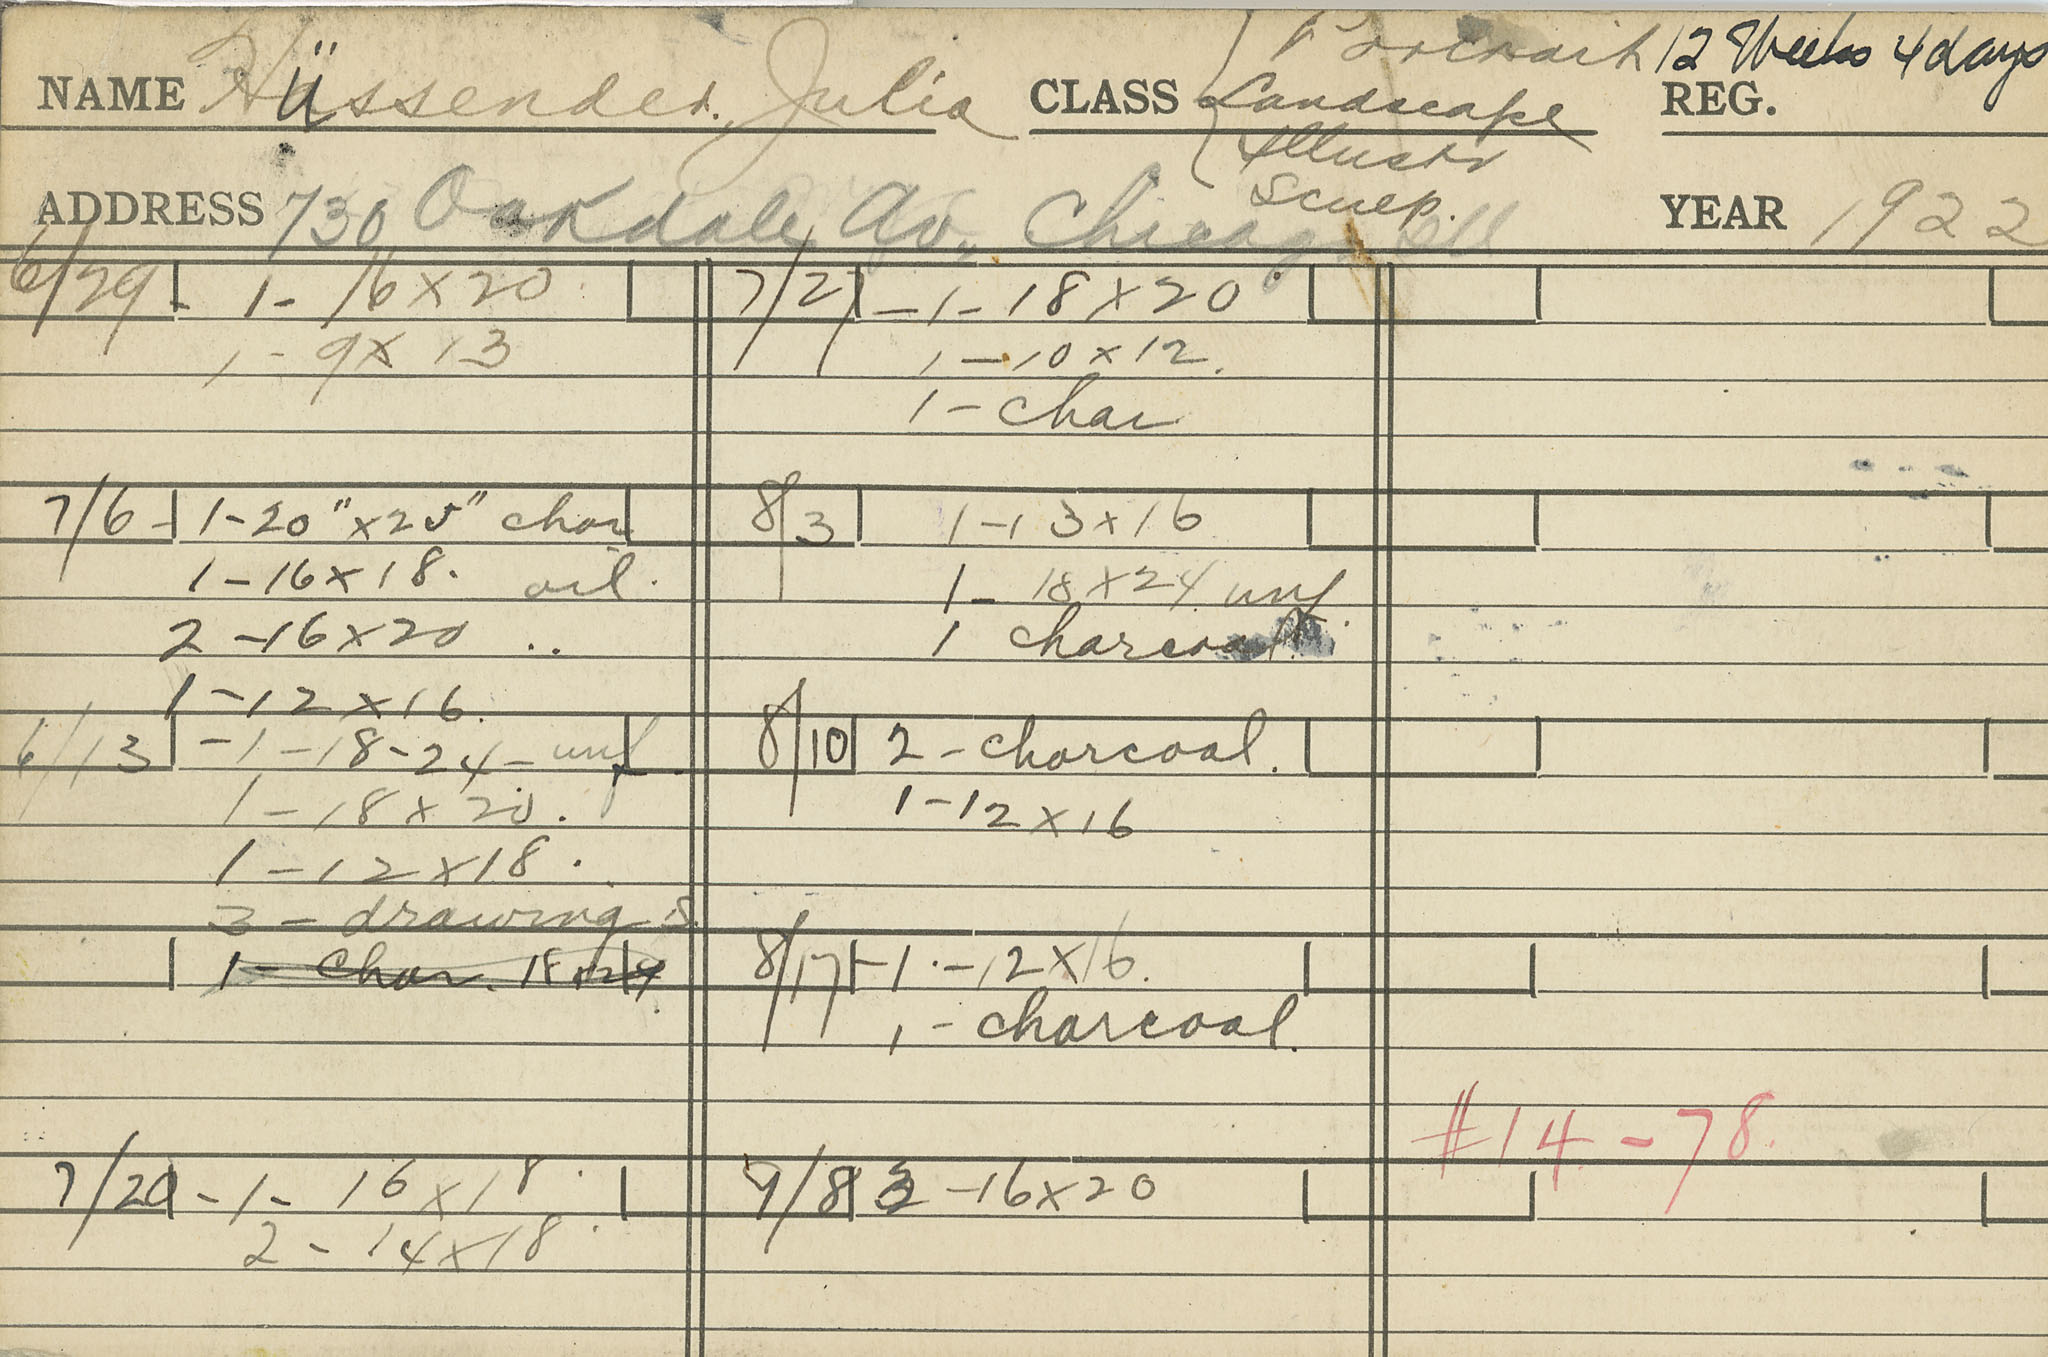 NAME Hüssender, Julia CLASS Portrait 12 Weeks 4 days
Landscape REG.
Illustr
Sculp.
ADDRESS 730 Oakdale Av., Chicago Ill YEAR 1922
6/29 - 1 - 16 x 20
1 - 9 x 13
7/6 - 1 - 20" x 25" char
1 - 16 x 18. oil.
2 - 16 x 20 ..
1 - 12 x 16.
6/13 - 1 - 18 - 24 - unf.
1 - 18 x 20.
1 - 12 x 18.
3 - drawings.
1 - Char. 18 x 24
7/20 - 1 - 16 x 18.
2 - 14 x 18.
7/27 - 1 - 18 x 20
1 - 10 x 12.
1 - char
8/3 1 - 13 x 16
1 - 18 x 24 unf.
1 charcoal
8/10 2 - charcoal.
1 - 12 x 16
8/17 - 1 - 12 x 16.
1 - charcoal.
- 16 x 20
#14 - 78.